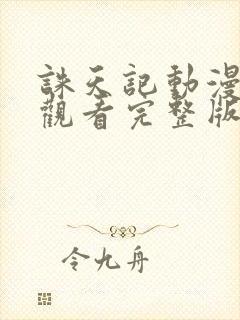 誅天記動漫
觀看完整版
令九舟